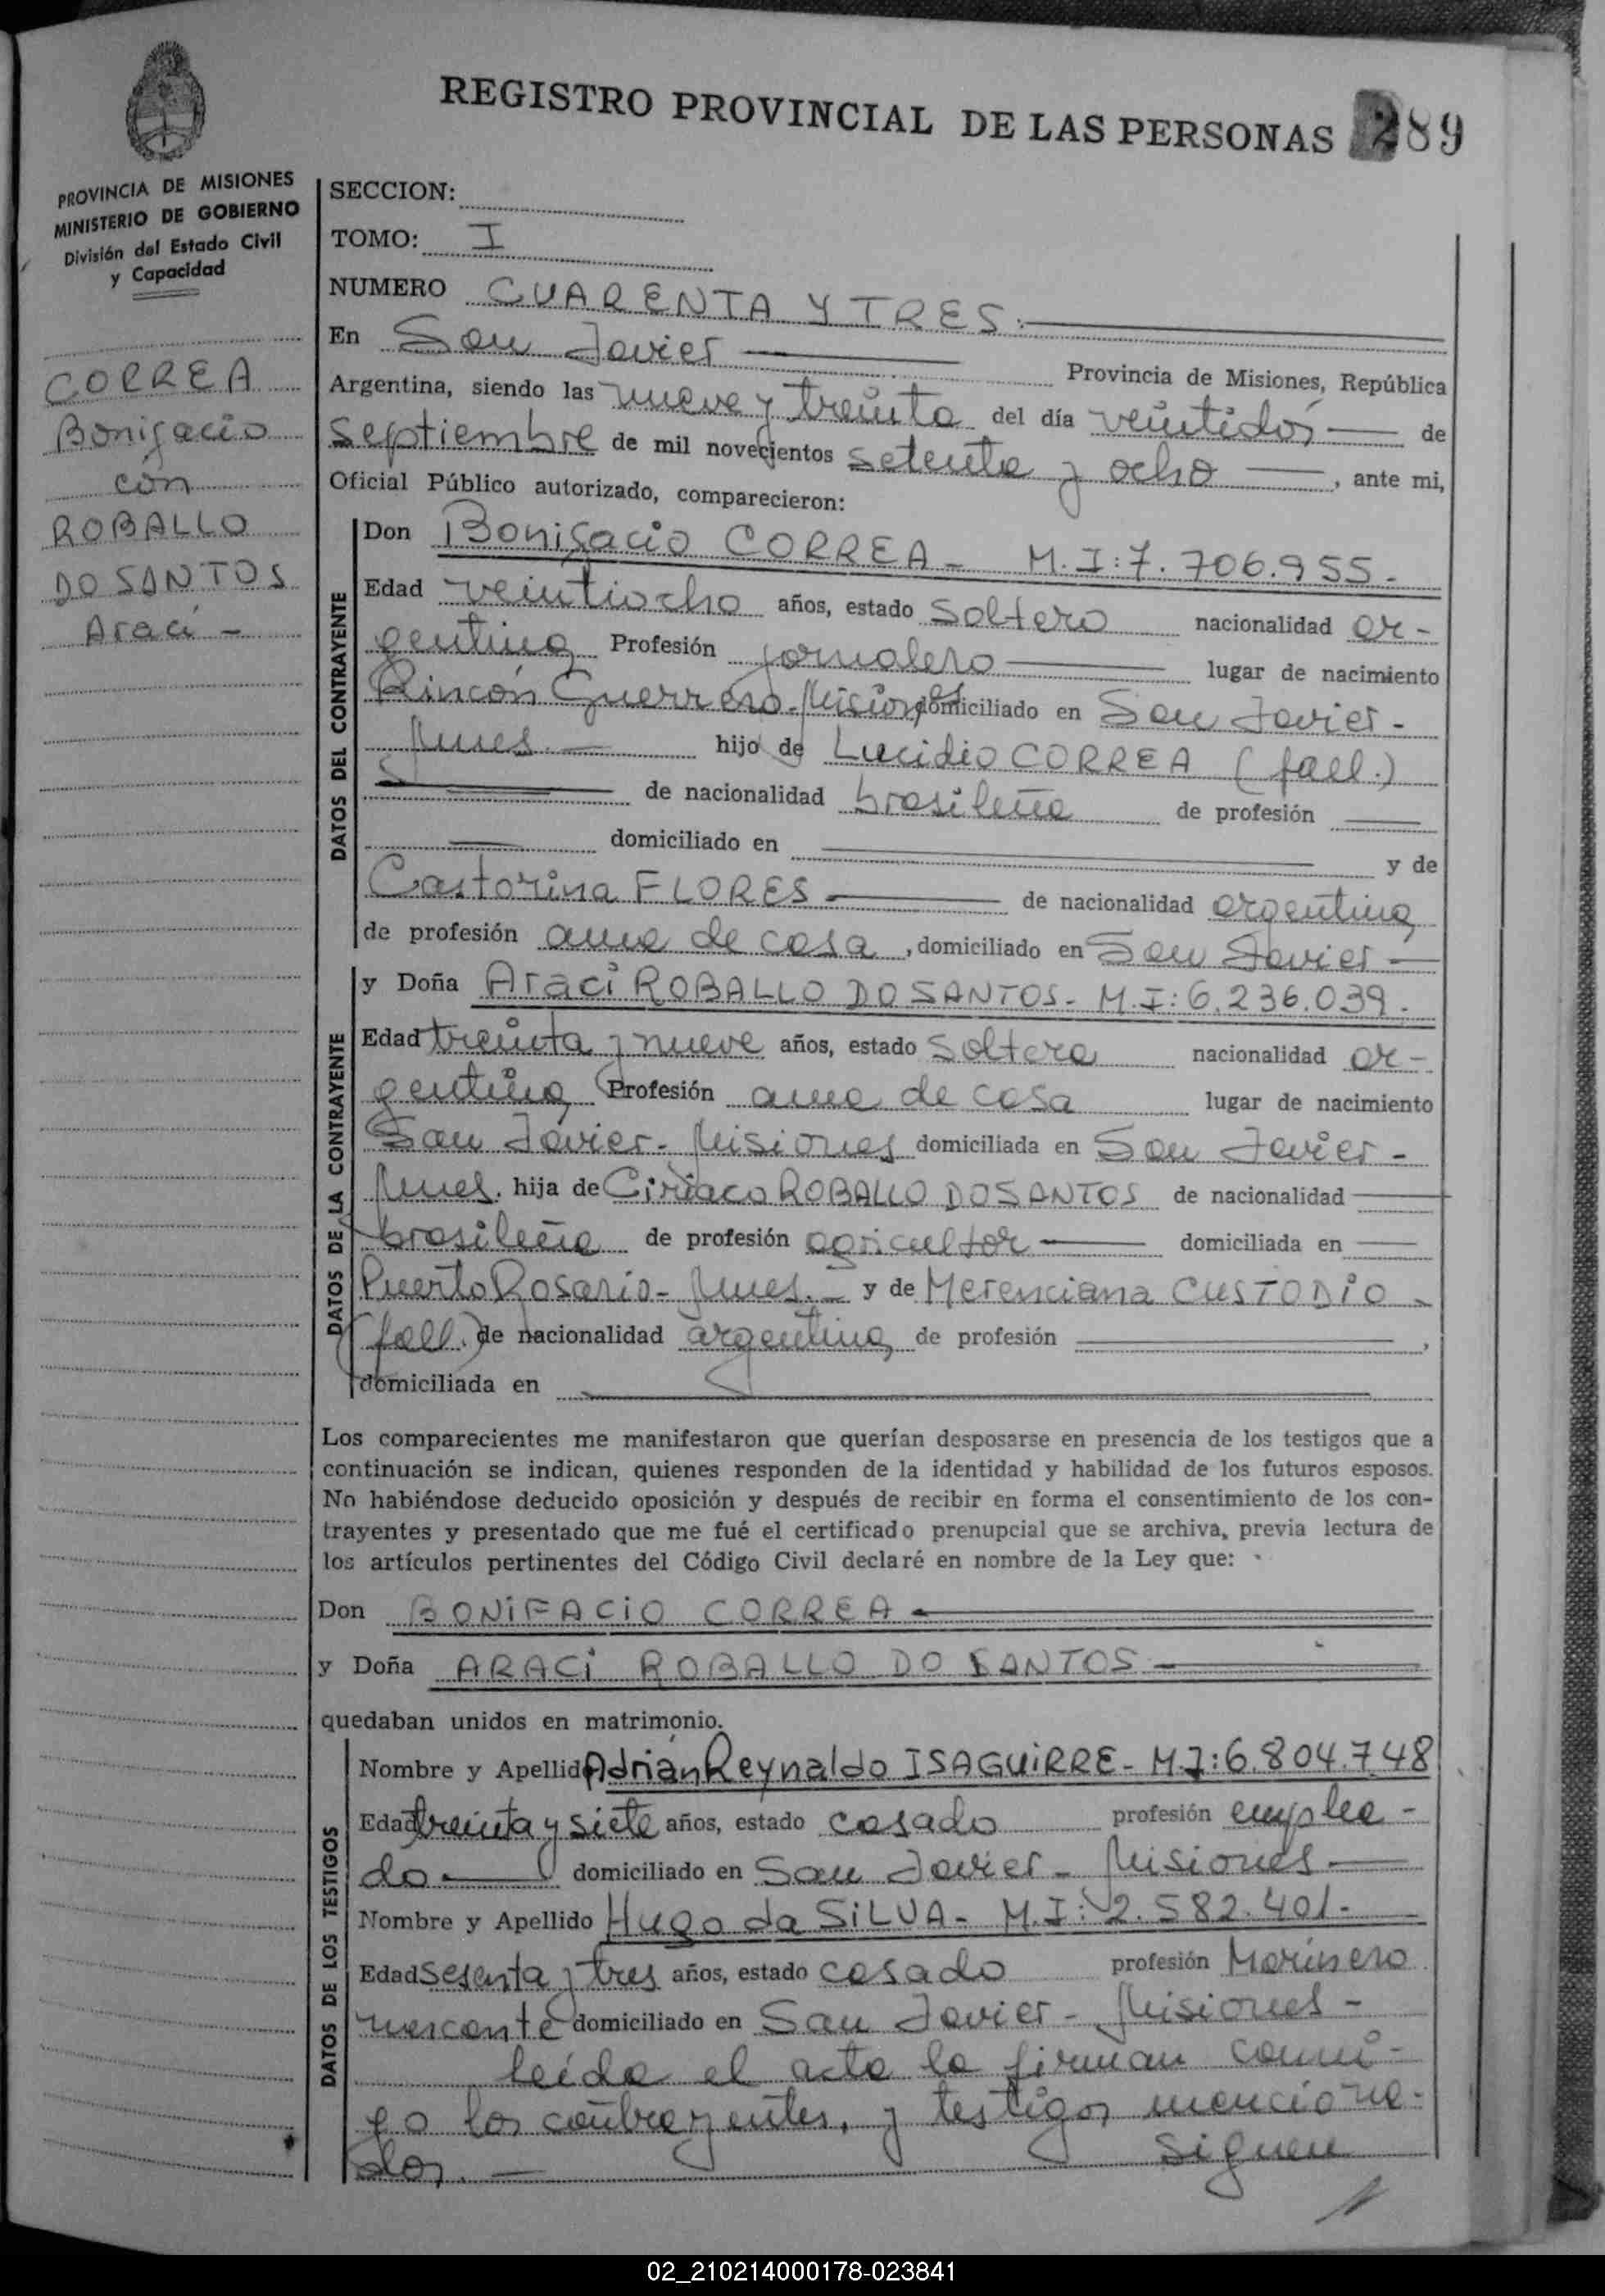 REGISTRO PROVINCIAL DE LAS PERSONAS 289
PROVINCIA DE MISIONES
MINISTERIO DE GOBIERNO
División del Estado Civil
y Capacidad
CORREA
Bonifacio
con
ROBALLO
DO SANTOS
Araci -
SECCION:
TOMO: I
NUMERO CUARENTA Y TRES.
En San Javier Provincia de Misiones, República
Argentina, siendo las nueve y treinta del día veintidós de
septiembre de mil novecientos setenta y ocho, ante mi,
Oficial Público autorizado, comparecieron:
DATOS DEL CONTRAYENTE
Don Bonifacio CORREA - M.I: 7.706.955.
Edad veintiocho años, estado soltero nacionalidad ar-
gentina Profesión jornalero lugar de nacimiento
Rincón Guerrero - Misiones domiciliado en San Javier -
Mnes. hijo de Lucidio CORREA (fall.)
de nacionalidad brasileña de profesión
domiciliado en y de
Castorina FLORES de nacionalidad argentina
de profesión ama de casa, domiciliado en San Javier
DATOS DE LA CONTRAYENTE
y Doña Araci ROBALLO DO SANTOS - M.I: 6.236.039.
Edad treinta y nueve años, estado soltera nacionalidad ar-
gentina Profesión ama de casa lugar de nacimiento
San Javier - Misiones domiciliada en San Javier -
Mnes. hija de Ciriaco ROBALLO DO SANTOS de nacionalidad
brasileña de profesión agricultor domiciliada en
Puerto Rosario - Mnes. - y de Merenciana CUSTODIO -
(fall.) de nacionalidad argentina de profesión ,
domiciliada en
Los comparecientes me manifestaron que querían desposarse en presencia de los testigos que a
continuación se indican, quienes responden de la identidad y habilidad de los futuros esposos.
No habiéndose deducido oposición y después de recibir en forma el consentimiento de los con-
trayentes y presentado que me fué el certificado prenupcial que se archiva, previa lectura de
los artículos pertinentes del Código Civil declaré en nombre de la Ley que:
Don BONIFACIO CORREA
y Doña ARACI ROBALLO DO SANTOS
quedaban unidos en matrimonio.
DATOS DE LOS TESTIGOS
Nombre y Apellido Adrián Reynaldo ISAGUIRRE - M.I: 6.804.748
Edad treinta y siete años, estado casado profesión emplea-
do domiciliado en San Javier - Misiones
Nombre y Apellido Hugo da SILVA - M.I: 2.582.401.
Edad sesenta y tres años, estado casado profesión Marinero
mercante domiciliado en San Javier - Misiones -
leída el acta la firman conmi-
go los contrayentes, y testigos menciona-
dos. - Siguen
02_210214000178-023841